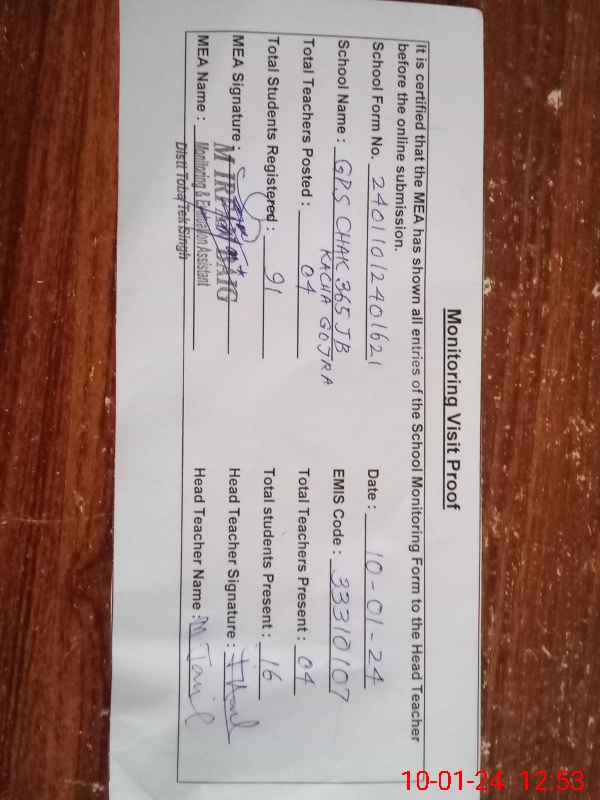 Monitoring Visit Proof
It is certified that the MEA has shown all entries of the School Monitoring Form to the Head Teacher
before the online submission.
School Form No. 24011012401621 Date : 10-01-24
School Name : GPS CHAK 365 JB EMIS Code : 33310107
KACHA GOJRA
Total Teachers Posted : 04 Total Teachers Present : 04
Total Students Registered : 91 Total students Present : 16
MEA Signature : Head Teacher Signature :
M IRFAN BAIG
MEA Name : Monitoring & Evaluation Assistant Head Teacher Name : M
Distt Toba Tek Singh
10-01-24 12:53